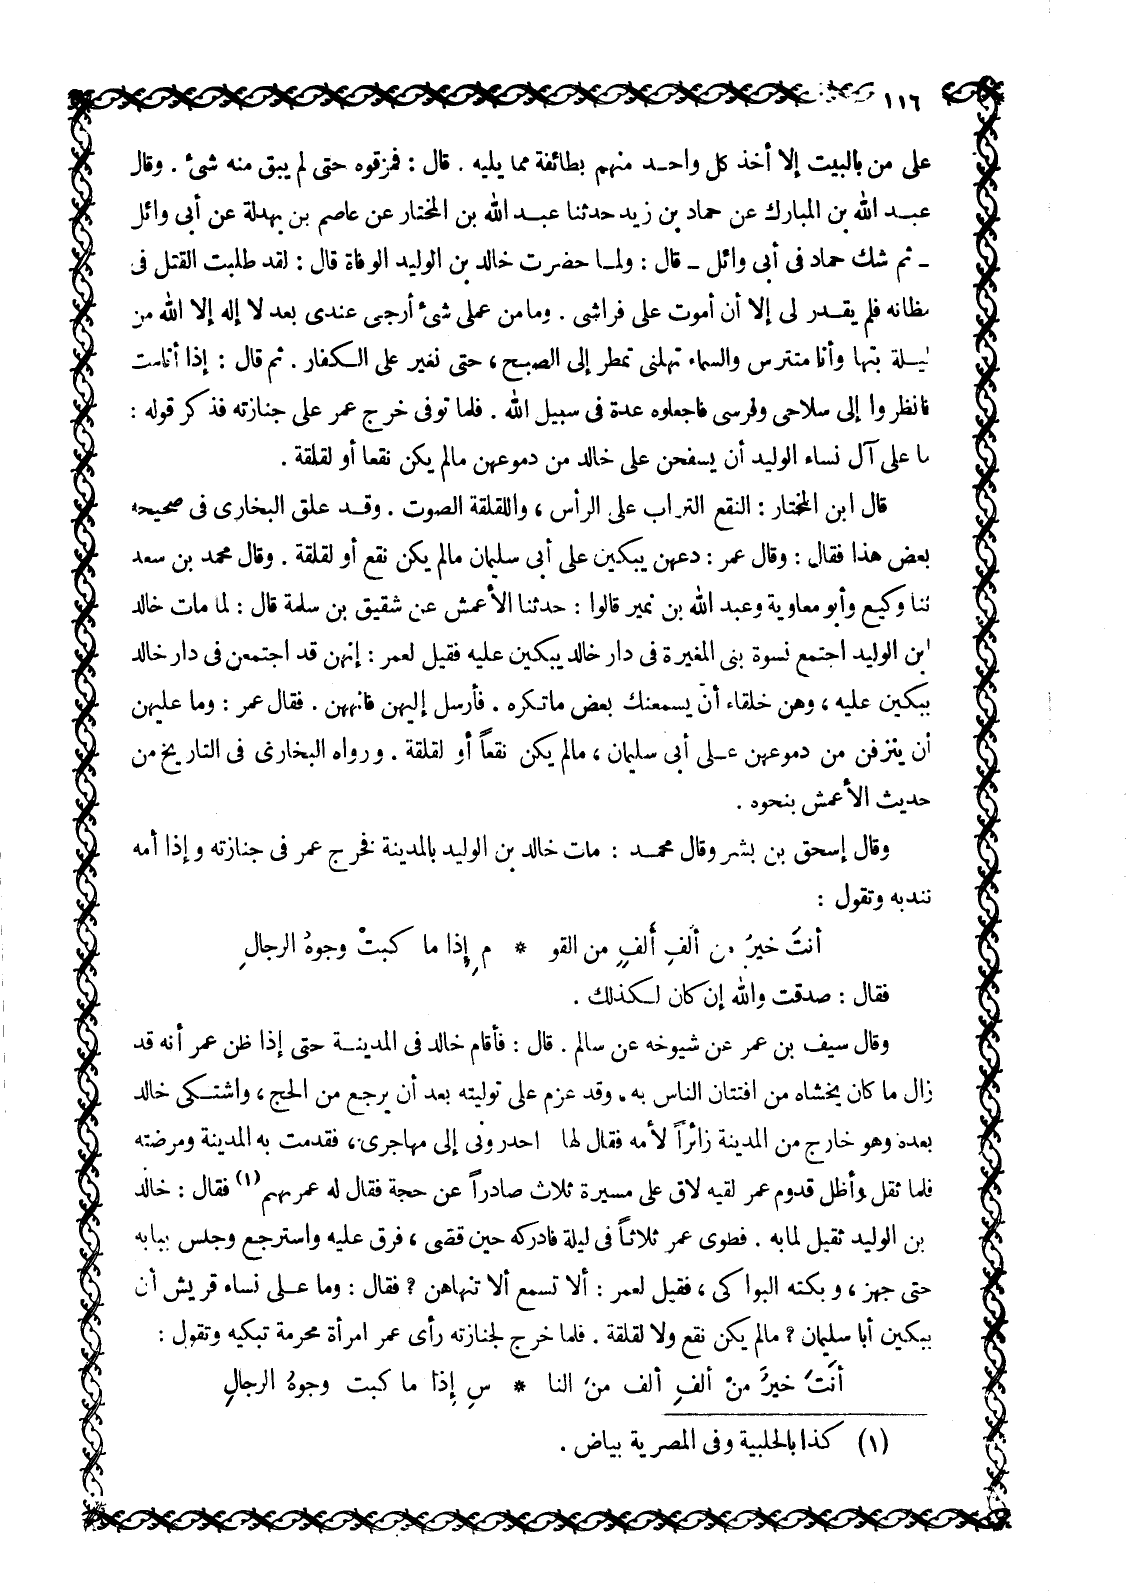 ١١٦
على من بالبيت إلا أخذ كل واحد منهم بطائفة مما يليه . قال : فمزقوه حتى لم يبق منه شئ . وقال
عبد الله بن المبارك عن حماد بن زيد حدثنا عبد الله بن المختار عن عاصم بن بهدلة عن أبى وائل
ـ ثم شك حماد فى أبى وائل ـ قال : ولما حضرت خالد بن الوليد الوفاة قال : لقد طلبت القتل فى
مظانه فلم يقدر لى إلا أن أموت على فراشى . وما من عملى شئ أرجى عندى بعد لا إله إلا الله من
ليلة بتها وأنا متترس والسماء تهلنى تمطر إلى الصبح ، حتى نغير على الكفار . ثم قال : إذا أنامت
فانظروا إلى سلاحى وفرسى فاجعلوه عدة فى سبيل الله . فلما توفى خرج عمر على جنازته فذكر قوله :
ما على آل نساء الوليد أن يسفحن على خالد من دموعهن مالم يكن نقعا أو لقلقة .
قال ابن المختار : النقع التراب على الرأس ، واللقلقة الصوت . وقد علق البخارى فى صحيحه
بعض هذا فقال : وقال عمر : دعهن يبكين على أبى سليمان مالم يكن نقع أو لقلقة . وقال محمد بن سعد
ثنا وكيع وأبو معاوية وعبد الله بن نمير قالوا : حدثنا الأعمش عن شقيق بن سلمة قال : لما مات خالد
ابن الوليد اجتمع نسوة بنى المغيرة فى دار خالد يبكين عليه فقيل لعمر : إنهن قد اجتمعن فى دار خالد
يبكين عليه ، وهن خلقاء أن يسمعنك بعض ماتكره . فأرسل إليهن فانههن . فقال عمر : وما عليهن
أن ينزفن من دموعهن على أبى سليمان ، مالم يكن نقعاً أو لقلقة . ورواه البخارى فى التاريخ من
حديث الأعمش بنحوه .
وقال إسحق بن بشر وقال محمد : مات خالد بن الوليد بالمدينة فخرج عمر فى جنازته وإذا أمه
تندبه وتقول :
أنتَ خيرٌ من ألفِ ألفٍ من القو * مِ إِذا ما كبتْ وجوهُ الرجالِ
فقال : صدقت والله إن كان لكذلك .
وقال سيف بن عمر عن شيوخه عن سالم . قال : فأقام خالد فى المدينة حتى إذا ظن عمر أنه قد
زال ما كان يخشاه من افتتان الناس به . وقد عزم على توليته بعد أن يرجع من الحج ، واشتكى خالد
بعده وهو خارج من المدينة زائراً لأمه فقال لها احدرونى إلى مهاجرى ، فقدمت به المدينة ومرضته
فلما ثقل وأظل قدوم عمر لقيه لاق على مسيرة ثلاث صادراً عن حجة فقال له عمر مهيم (١) فقال : خالد
بن الوليد ثقيل لمابه . فطوى عمر ثلاثاً فى ليلة فادركه حين قضى ، فرق عليه واسترجع وجلس ببابه
حتى جهز ، وبكته البواكى ، فقيل لعمر : ألا تسمع ألا تنهاهن ؟ فقال : وما على نساء قريش أن
يبكين أبا سليمان ؟ مالم يكن نقع ولا لقلقة . فلما خرج لجنازته رأى عمر امرأة محرمة تبكيه وتقول :
أنتَ خيرٌ منْ ألفِ ألف منَ النا * سِ إِذا ما كبت وجوهُ الرجالِ
(١) كذا بالحلبية وفى المصرية بياض .